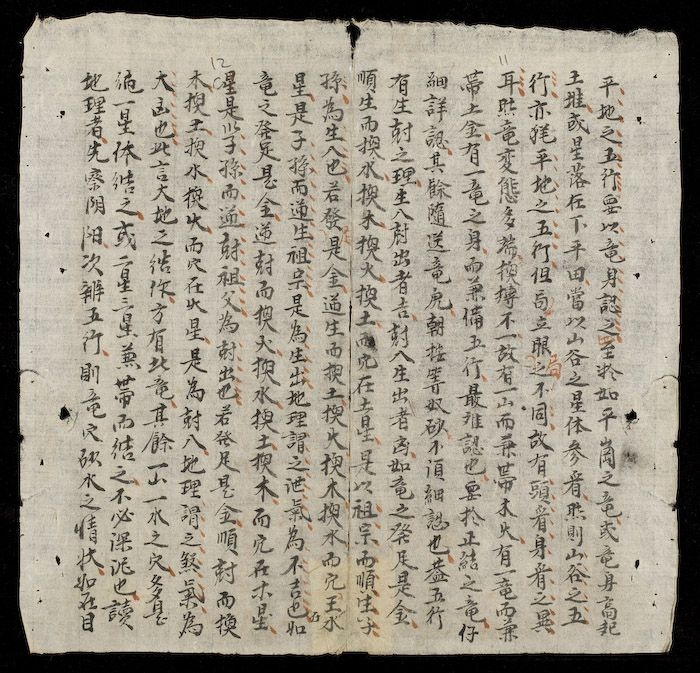 11
平地之五行要以竜身認之至於如平崗之竜或竜身高起
土堆或星落在下平田當以山谷之星体參看然則山谷之五
行亦犹平地之五行但局立眼之不同故有頭看身看之異
耳然竜变態多端換轉不一故有一山而兼帶木火有一竜而兼
帶土金有一竜之身而兼備五行最难認也要於正結之竜仔
細詳認其餘隨送竜虎朝按等奴砂不須細認也盖五行
有生尅之理生入尅出者吉尅入生出者凶如竜之發足是金
順生而換水換木換火換土而穴在土星是以祖宗而順生子
孫為生入也若發是金逆生而換土換火換木換水而穴玉水
星是子孫而逆生祖宗是為生出地理謂之泄氣為不吉也如
竜之發足是金逆尅而換火換水換土換木而穴在木星
12
星是以子孫而逆尅祖父為尅出也若發足是金順尅而換
木換土換水換火而穴在火星是為尅入地理謂之煞氣為
大凶也此言大地之結作方有此竜其餘一山一水之穴多是
偏一星体結之或二星三星兼帶而結之不必深泥也讀
地理者先察阴阳次辨五行則竜穴砂水之情狀如在目